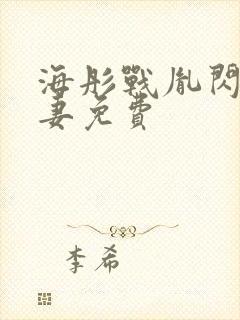 海彤戰胤閃
妻免費
李希